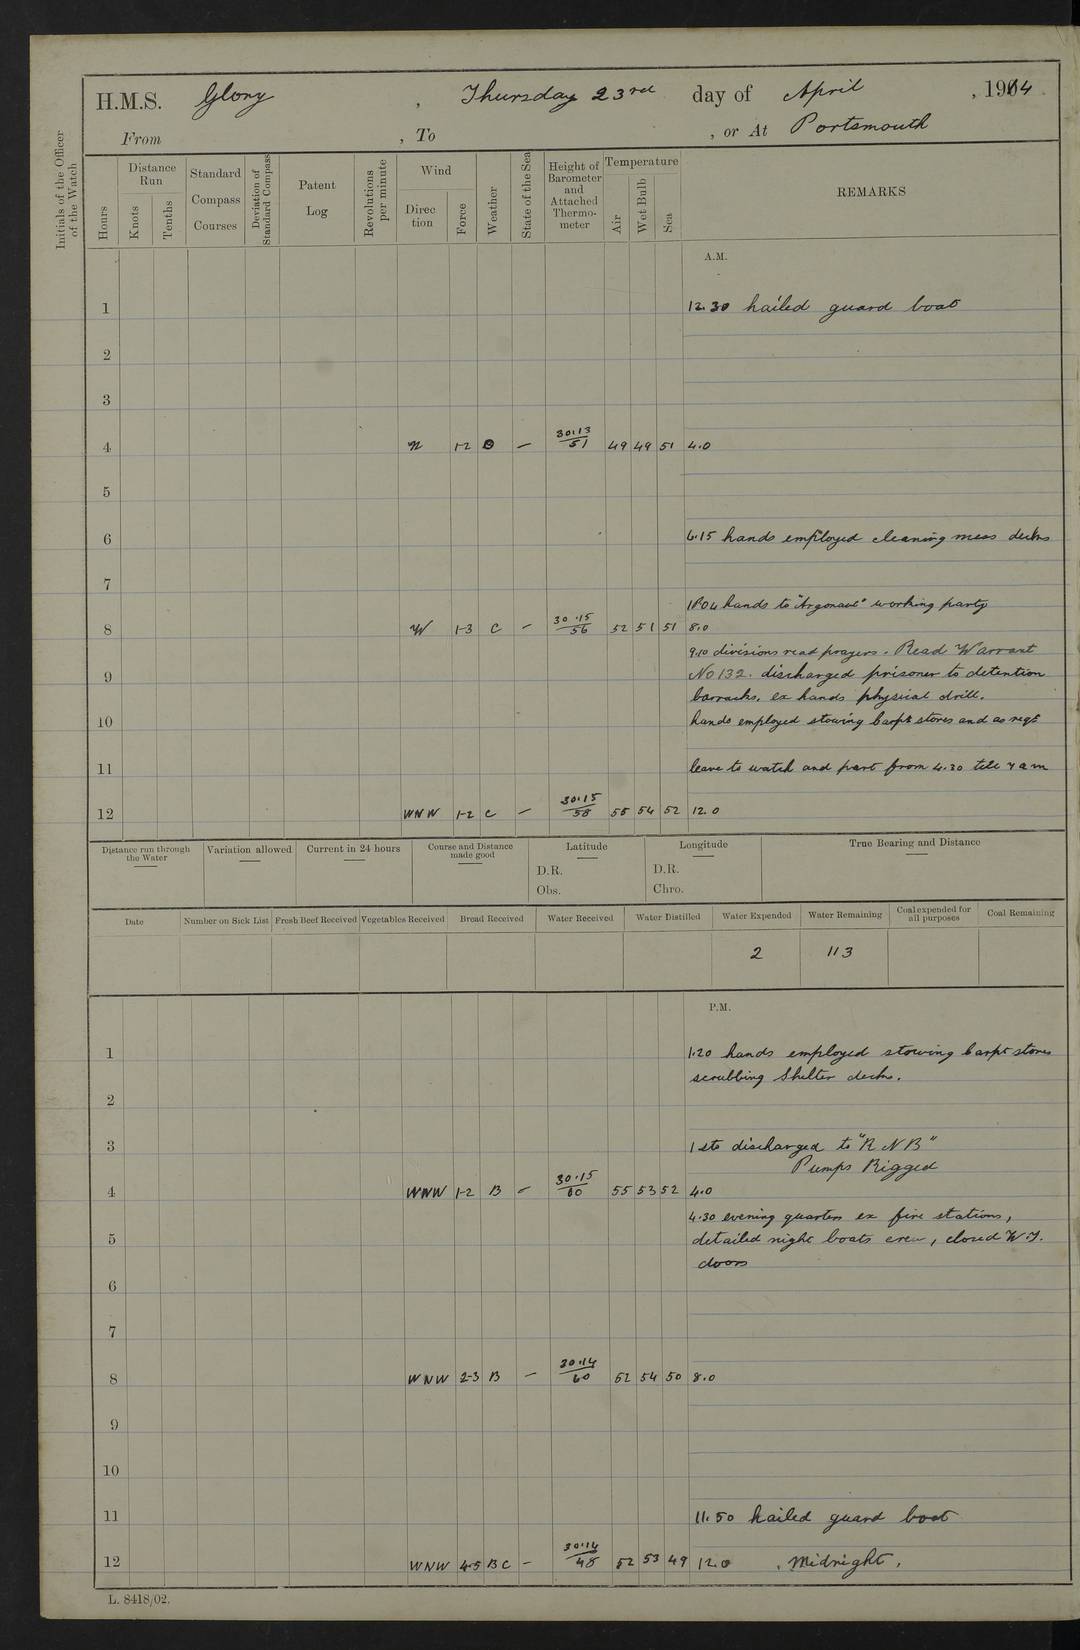 H.M.S. Glory, Thursday 23rd day of April, 1914
From , To , or At Portsmouth
Initials of the Officer of the Watch
Hours
Distance Run
Knots
Tenths
Standard Compass Courses
Deviation of Standard Compass
Patent Log
Revolutions per minute
Wind
Direction
Force
Weather
State of the Sea
Height of Barometer and Attached Thermometer
Temperature
Air
Wet Bulb
Sea
REMARKS
A.M.
1 12.30 hailed guard boat
2
3
4 N 1-2 O — 30.13/51 49 49 51 4.0
5
6 6.15 hands employed cleaning mess decks
7
hands to "Argonaut" working party
8 W 1-3 C — 30.15/56 52 51 51 8.0
9.10 divisions read prayers. Read Warrant
9 No 132. discharged prisoner to detention
barracks. ex hands physical drill.
10 hands employed stowing carpt stores and as reqd
11 leave to watch and part from 4.30 till 7 am
12 WNW 1-2 C — 30.15/58 55 54 52 12.0
Distance run through the Water
Variation allowed
Current in 24 hours
Course and Distance made good
Latitude
D.R.
Obs.
Longitude
D.R.
Chro.
True Bearing and Distance
Date Number on Sick List Fresh Beef Received Vegetables Received Bread Received Water Received Water Distilled Water Expended Water Remaining Coal expended for all purposes Coal Remaining
2 113
P.M.
1 1.20 hands employed stowing carpt stores
scrubbing Shelter decks.
2
3 1 sto discharged to "R N B"
Pumps Rigged
4 WNW 1-2 B — 30.15/60 55 53 52 4.0
4.30 evening quarters ex fire stations,
5 detailed night boats crew, closed W.T.
doors
6
7
8 WNW 2-3 B — 30.14/60 54 50 8.0
9
10
11 11.50 hailed guard boat
12 WNW 4-5 BC — 30.14/48 52 53 49 12.0 . Midnight.
L. 8418/02.